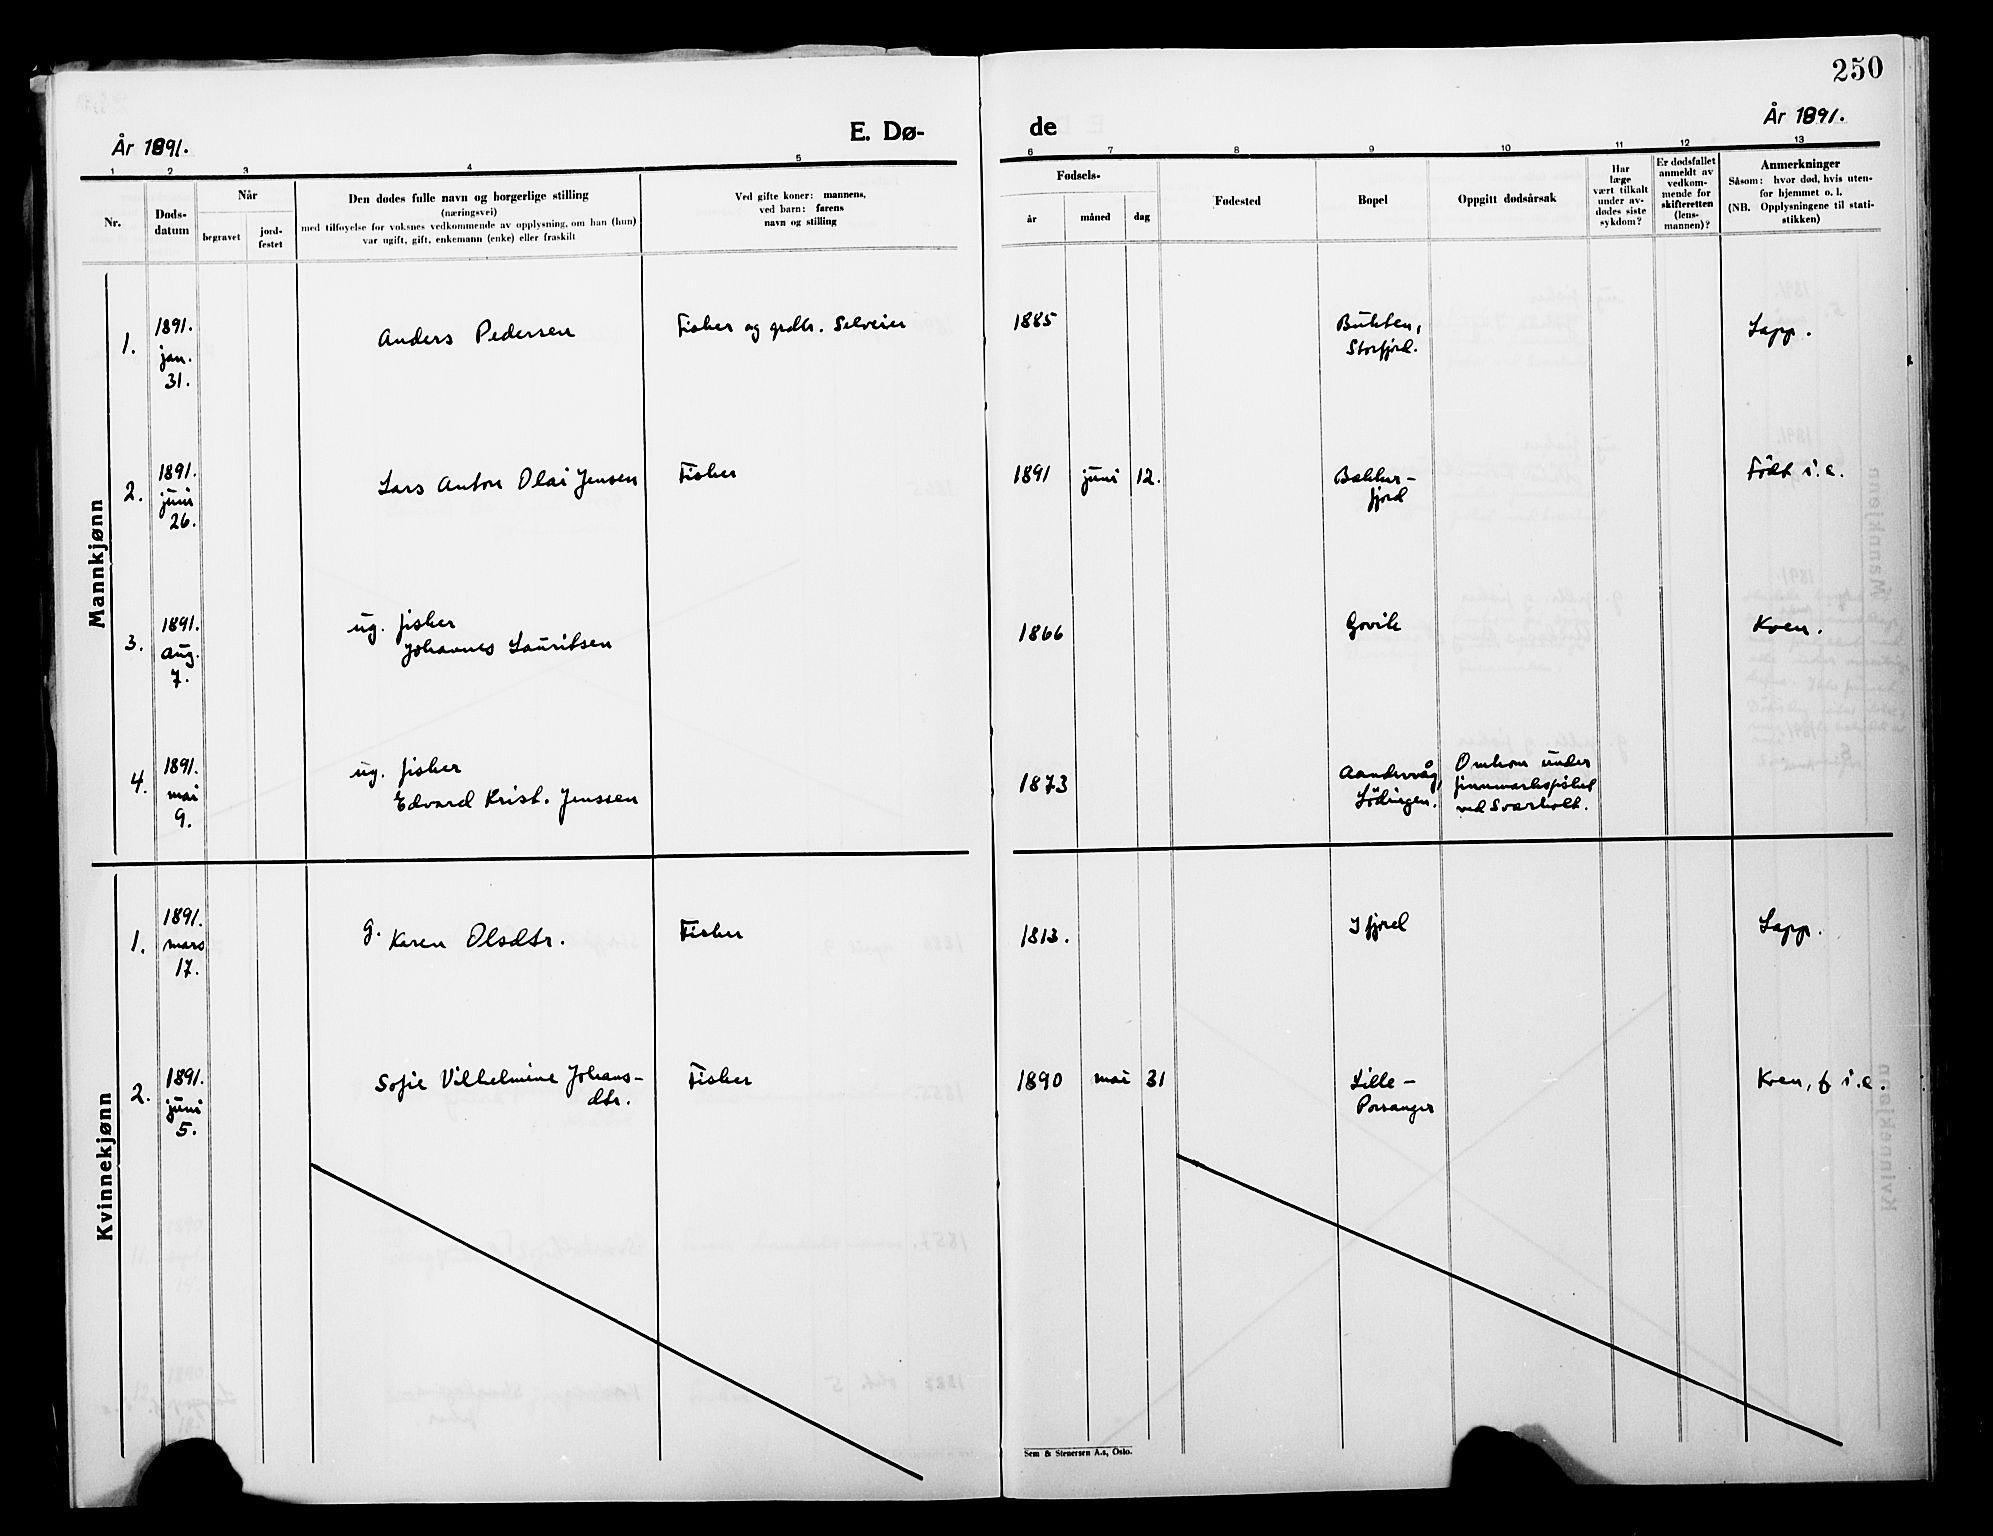 250
År 1891.
E. Dø-
de
År 1891.
1 2 3 4 5 6 7 8 9 10 11 12 13
Nr.
Døds-
datum
Når
begravet
jord-
festet
Den dødes fulle navn og borgerlige stilling
(næringsvei)
med tilføyelse for voksnes vedkommende av opplysning, om han (hun)
var ugift, gift, enkemann (enke) eller fraskilt
Ved gifte koner: mannens,
ved barn: farens
navn og stilling
Fødsels-
år
måned
dag
Fødested
Bopel
Oppgitt dødsårsak
Har
læge
vært tilkalt
under av-
dødes siste
sykdom?
Er dødsfallet
anmeldt av
vedkom-
mende for
skifteretten
(lens-
mannen)?
Anmerkninger
Såsom: hvor død, hvis uten-
for hjemmet o. l.
(NB. Opplysningene til stati-
stikken)
Mannkjønn
1.
1891.
jan.
31.
Anders Pedersen
Fisker og grdbr. Selveier
1885
Bukten,
Storfjord.
Lapp.
2.
1891.
juni
26.
Lars Anton Olai Jensen
Fisker
1891 juni 12.
Bakker-
fjord
Født i.e.
3.
1891.
aug.
7.
ug. fisker
Johannes Lauritsen
1866
Govik
Kven.
4.
1891.
mai
9.
ug. fisker
Edvard Krist. Jenssen
1873
Aandervåg,
Lødingen.
Omkom under
finnmarksfisket
ved Sværholt.
Kvinnekjønn
1.
1891.
mars
17.
g. Karen Olsdtr.
Fisker
1813.
Ifjord
Lapp.
2.
1891.
juni
5.
Sofie Vilhelmine Johans-
dtr.
Fisker
1890 mai 31
Lille-
Porsanger
Kven, f i.e.
Sem & Stenersen A.s, Oslo.